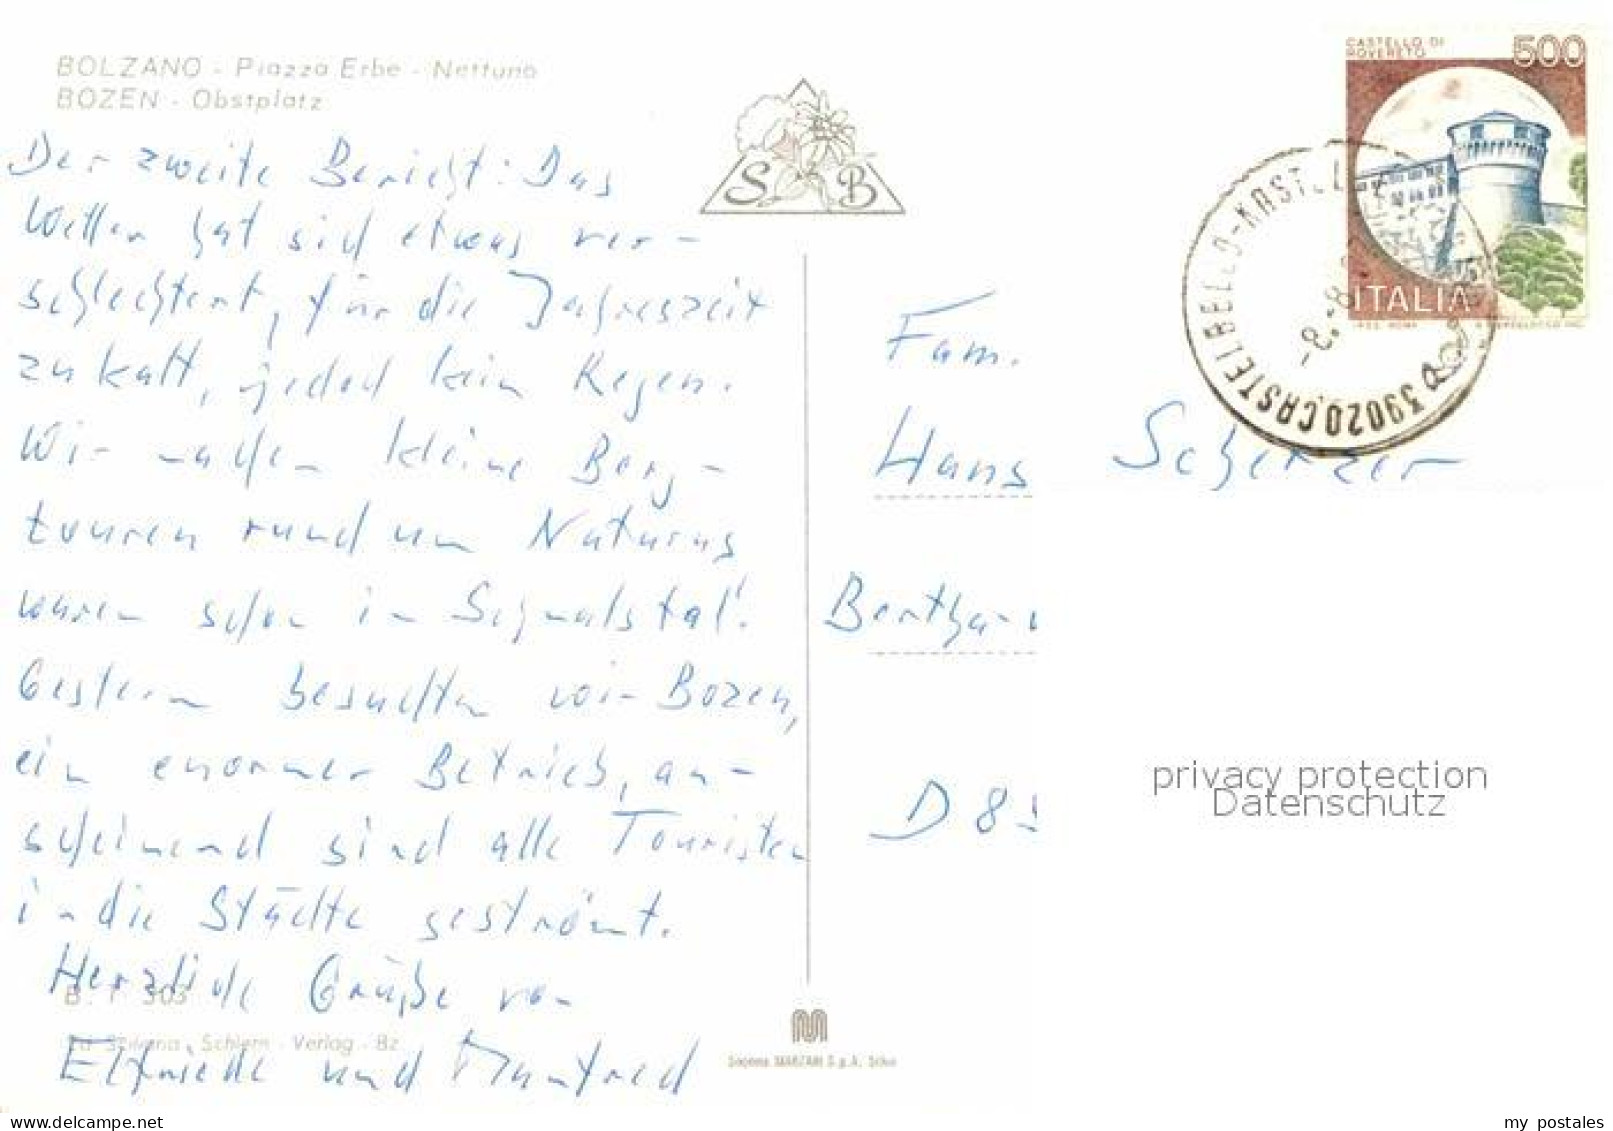 BOLZANO - Piazza Erbe - Nettuno
BOZEN - Obstplatz
S B
Der zweite Bericht: Das
Wetter hat sich etwas ver-
schlechtert, für die Jahreszeit
zu kalt, jedoch kein Regen.
Wir machen kleine Berg-
touren rund um Naturns
waren schon im Schnalstal!
Gestern besuchten wir Bozen,
ein enormer Betrieb, an-
scheinend sind alle Touristen
in die Städte geströmt.
Herzliche Grüße von
Elfriede und Manfred
B. 1 303
Schlern - Verlag - Bz
Società MARZARI S.p.A. Schio
CASTELLO DI
ROVERETO
500
ITALIA
39020 CASTELBELLO-KASTEL
-8.-8.
Fam.
Hans Scherzer
D 8
privacy protection
Datenschutz
www.delcampe.net
my_postales